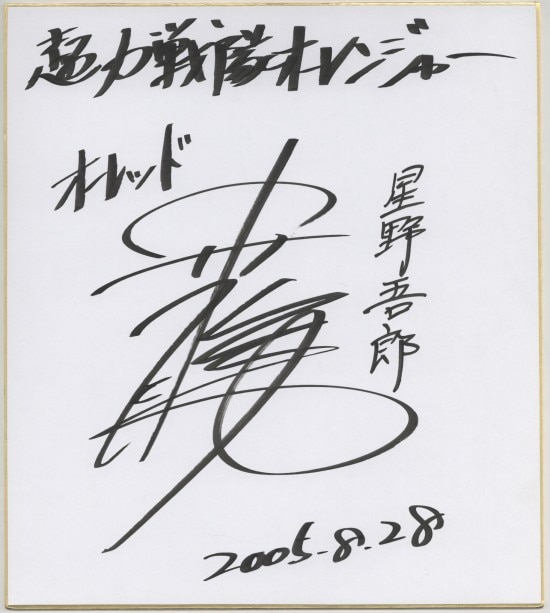 超力戦隊オーレンジャー
オーレッド
星野吾郎
2005.8.28